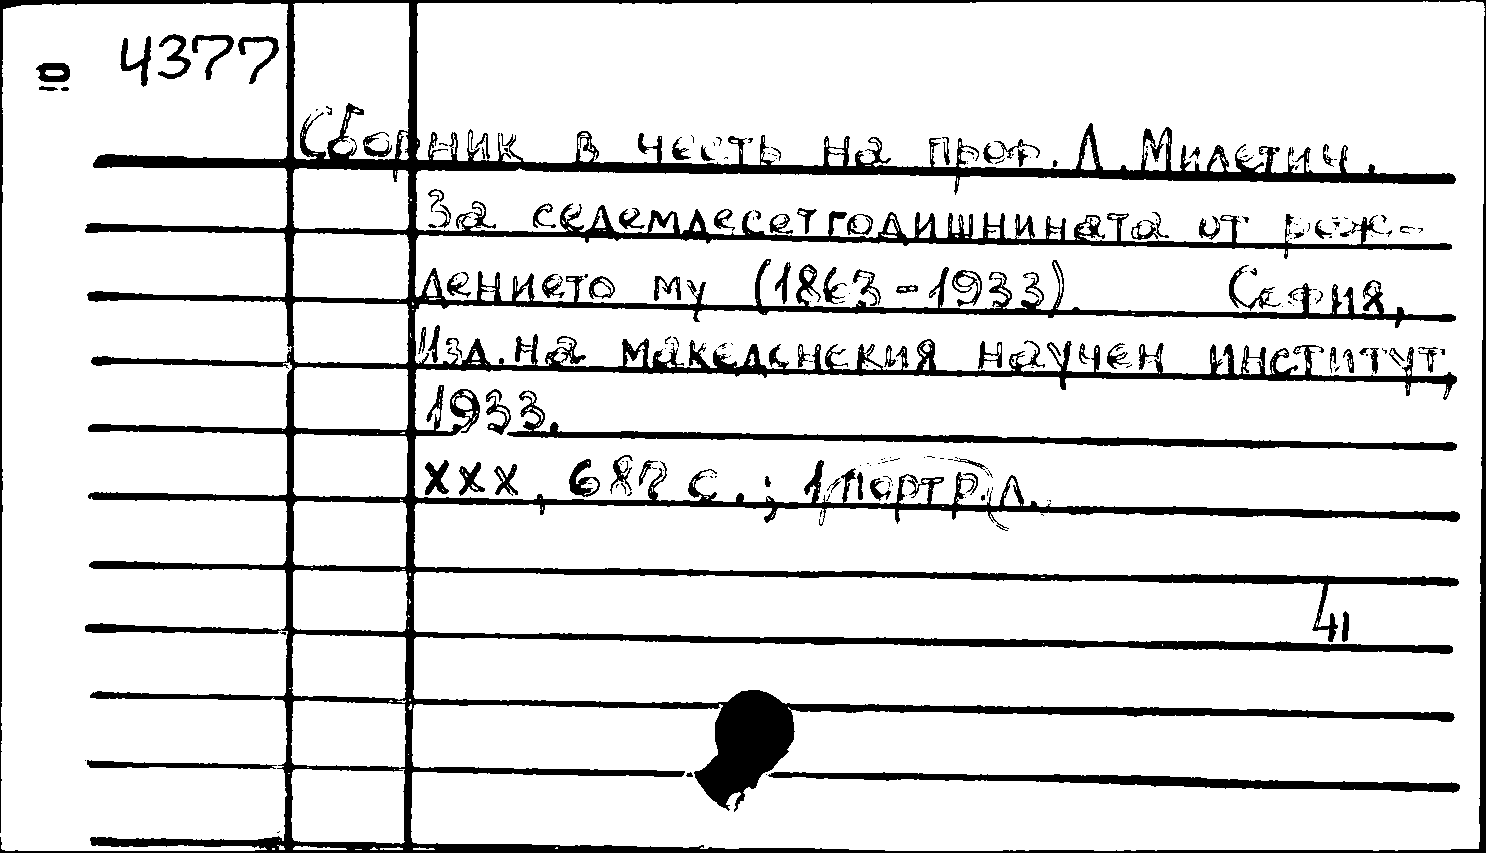 4377
Сборник в честь на проф. Л. Милетич.
За седемдесетгодишнината от рож-
дението му (1863-1933). София,
Изд. на македонския научен институт,
1933.
XXX, 687 с.; 1 портр. л.
41